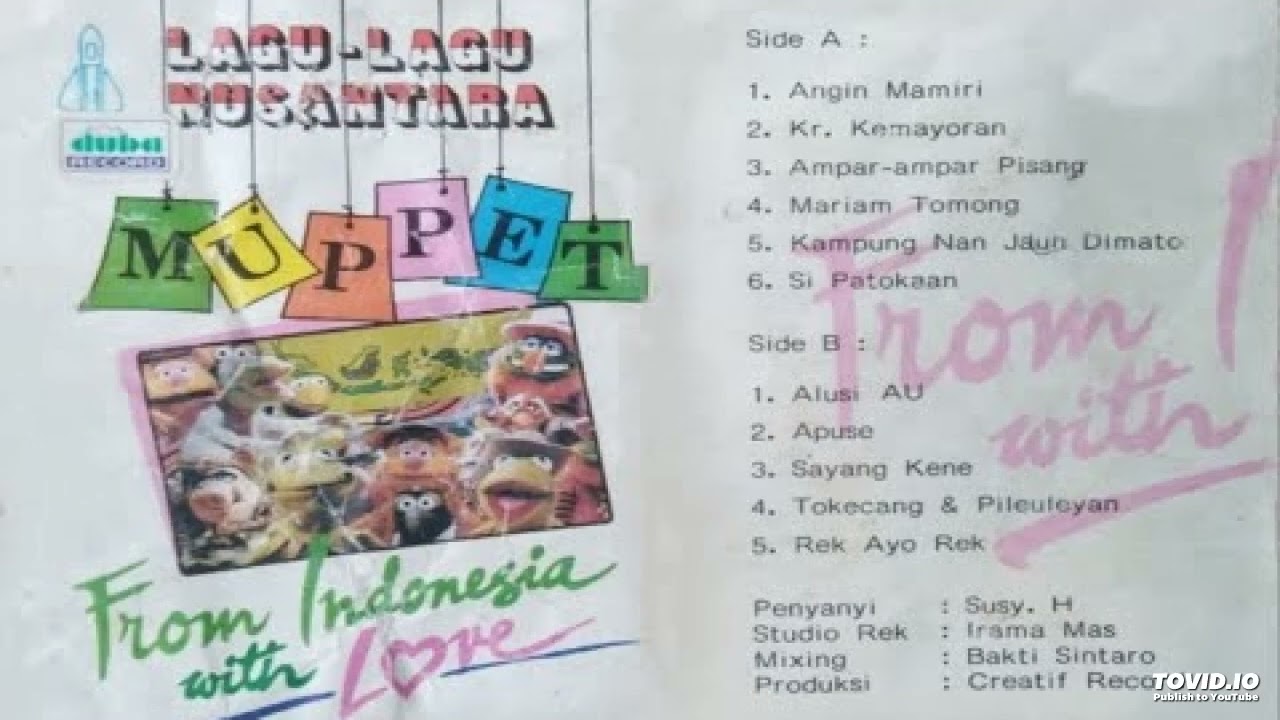 LAGU-LAGU
NUSANTARA
duba
RECORD
MUPPET
From Indonesia
with Love
Side A :
1. Angin Mamiri
2. Kr. Kemayoran
3. Ampar-ampar Pisang
4. Mariam Tomong
5. Kampung Nan Jauh Dimato
6. Si Patokaan
Side B :
1. Alusi AU
2. Apuse
3. Sayang Kene
4. Tokecang & Pileuleyan
5. Rek Ayo Rek
From I
with
Penyanyi : Susy. H
Studio Rek : Irama Mas
Mixing : Bakti Sintaro
Produksi : Creatif Reco
TOVID.IO
Publish to YouTube